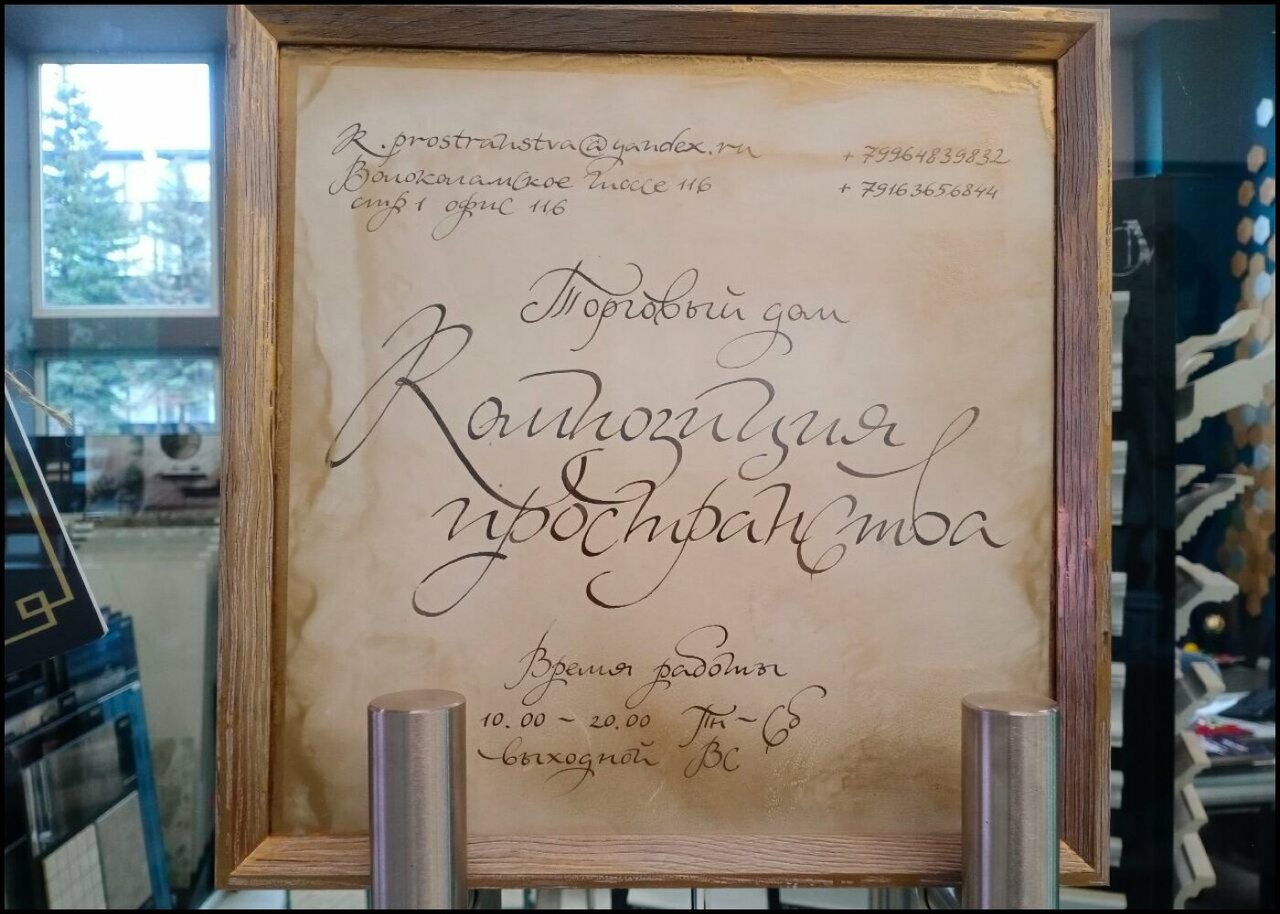 K.prostranstva@yandex.ru
+79964839832
Волоколамское шоссе 116
+79163656844
стр 1 офис 116
Торговый дом
Композиция
пространства
Время работы
10.00 - 20.00 Пн - Сб
выходной Вс